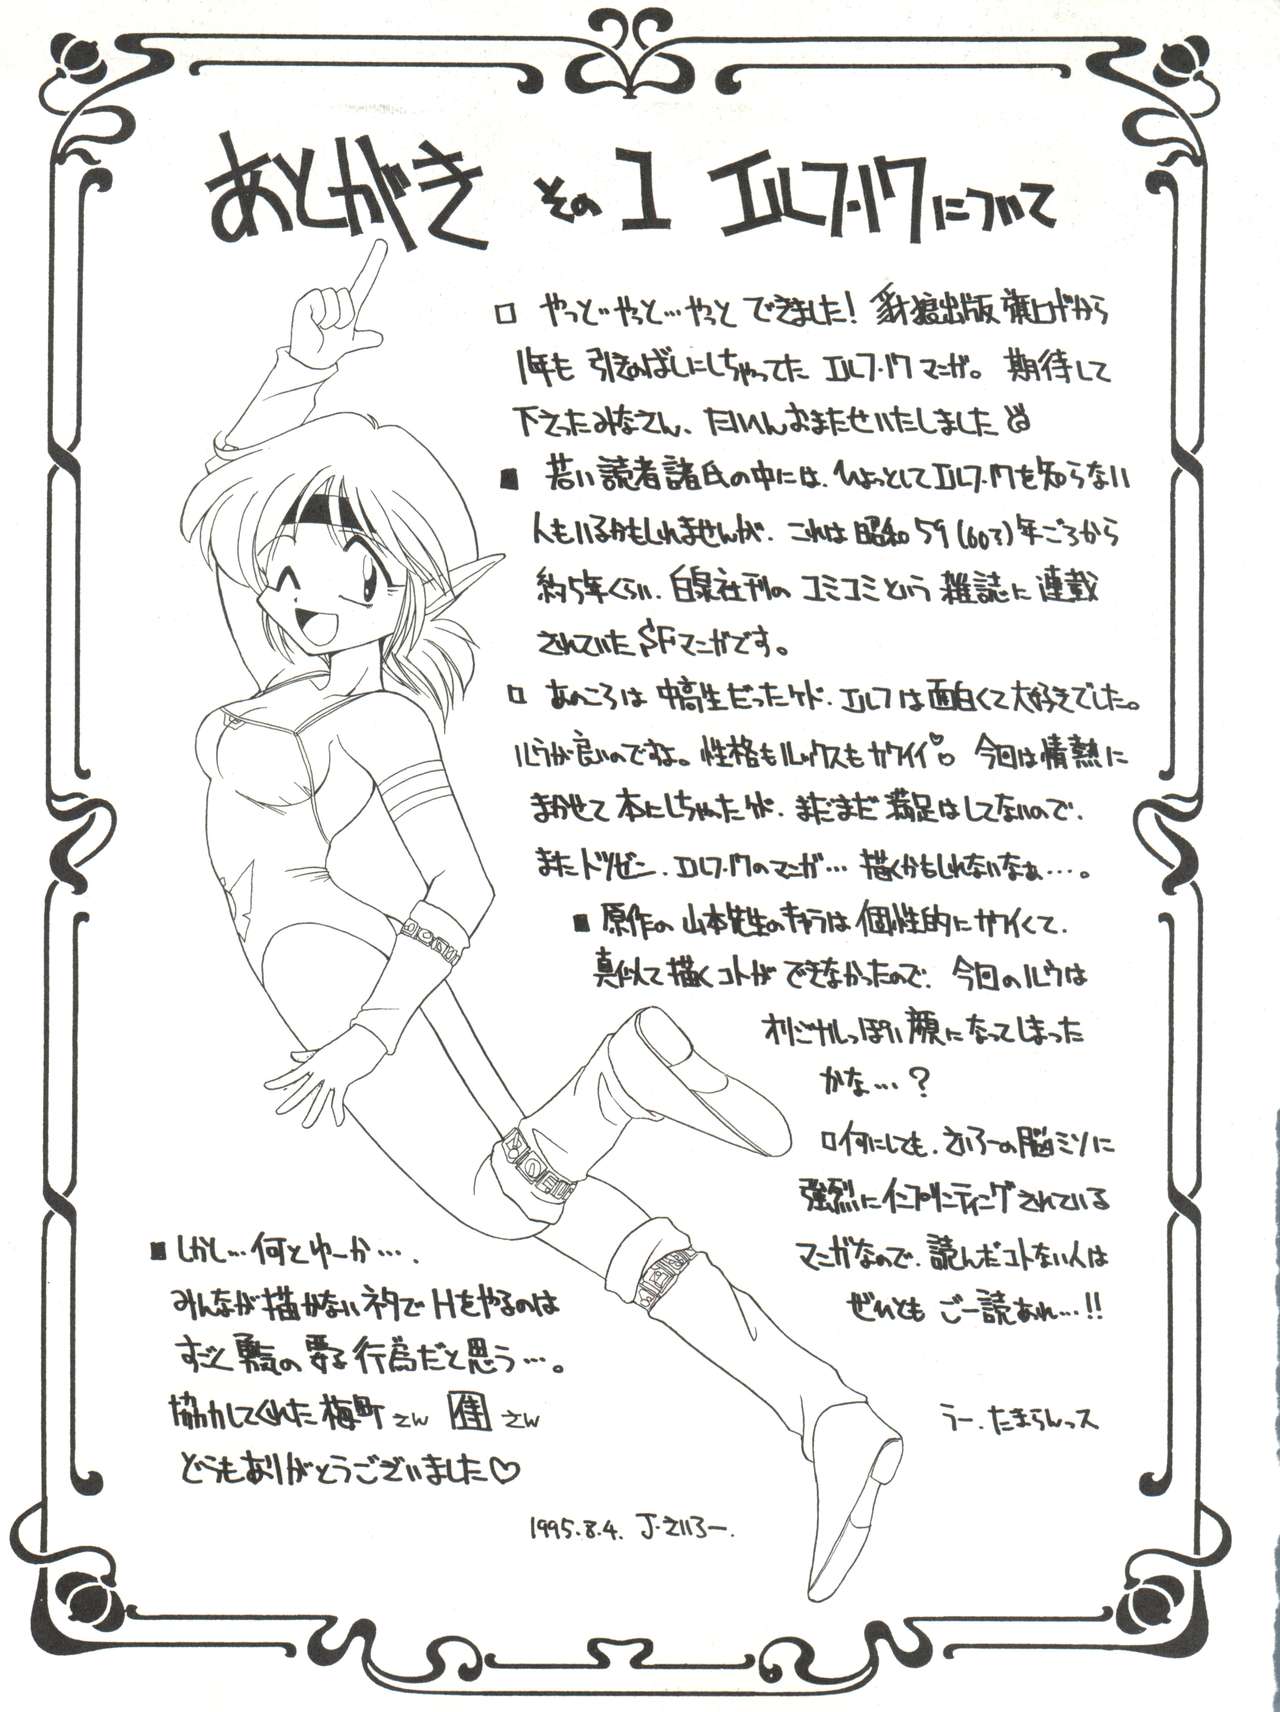 あとがき その1 エルフ・17について
□ やっと…やっと…やっと できました! 豺狼出版 旗上げから
1年も 引きのばしにしちゃってた エルフ・17 マンガ。 期待して
下さったみなさん、たいへんおまたせいたしました
■ 若い読者諸氏の中には、ひょっとしてエルフ・17を知らない
人もいるかもしれませんが、これは 昭和59(60?)年ごろから
約5年くらい、白泉社刊の コミコミという 雑誌に 連載
されていた SFマンガです。
□ あのころは 中高生だったケド、エルフは面白くて大好きでした。
ルウが良いのですよ。性格もルックスもカワイイ♡ 今回は情熱に
まかせて 本にしちゃったけど、まだまだ 満足はしてないので、
またトツゼン、エルフ・17のマンガ… 描くかもしれないなぁ…。
■ 原作の 山本先生のキャラは 個性的にカワイくて、
真似て描くコトが できなかったので、今回のルウは
オリジナルっぽい顔になってしまった
かな…?
□何にしても、さいろーの脳ミソに
強烈にインプリンティングされている
マンガなので、読んだコトない人は
ぜひとも ご一読あれ…!!
うー、たまらんっス
■しかし…何とゆーか…、
みんなが描かないネタでHをやるのは
すごく勇気の要る行為だと思う…。
協力してくれた 梅町さん 佳さん
どうもありがとうございました♡
1995.8.4. J・さいろー.